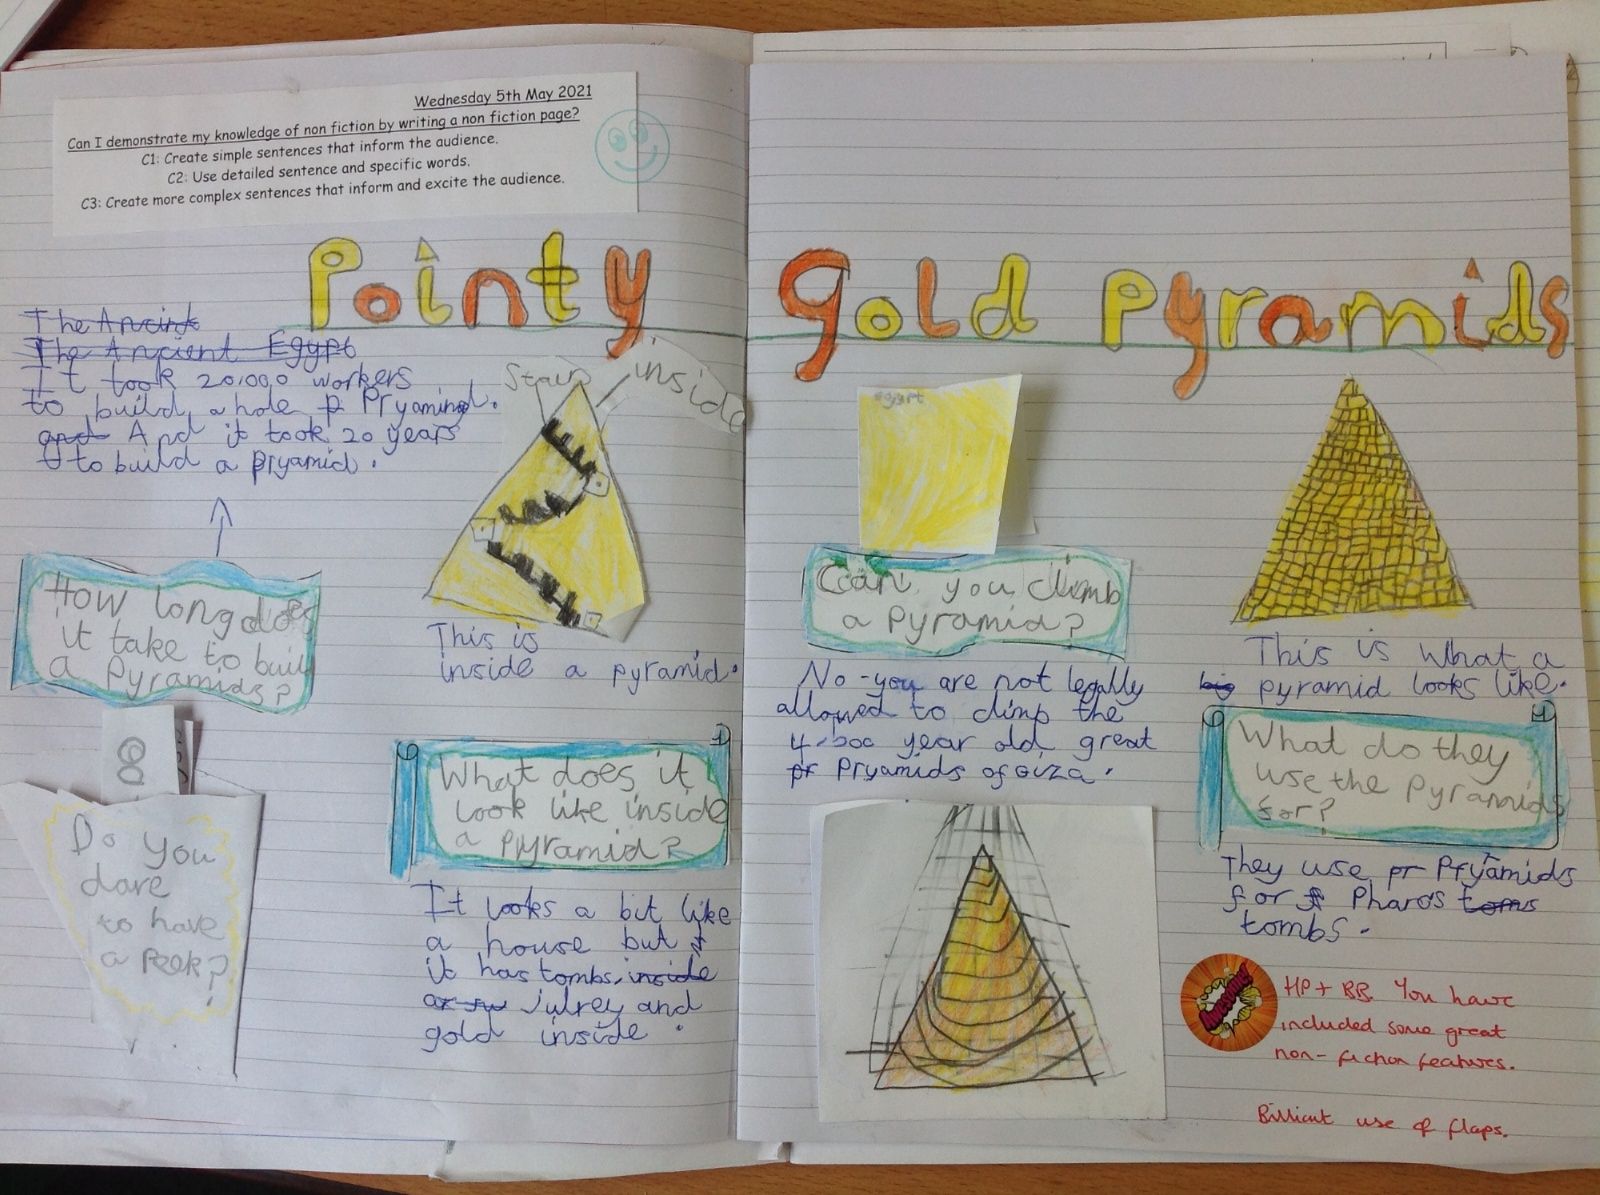 Wednesday 5th May 2021
Can I demonstrate my knowledge of non fiction by writing a non fiction page?
C1: Create simple sentences that inform the audience.
C2: Use detailed sentence and specific words.
C3: Create more complex sentences that inform and excite the audience.
Pointy gold pyramids
The Ancint
The Ancient Egypt
It took 20,000 workers
to build a hole p Pryamind.
and And it took 20 years
to build a pryamid.
How long does
it take to buily
a Pyramids?
Do you
dare
to have
a Peek?
Stairs
inside
This is
inside a pyramid.
What does it
look like inside
a pyramid?
It looks a bit like
a house but
it has tombs, inside
julrey and
gold inside.
egypt
Can you climb
a Pyramid?
No-you are not legally
allowed to climp the
4,500 year old great
pr Pryamids of Giza.
This is what a
big pyramid looks like.
What do they
use the Pyramids
for?
They use pr Pryamids
for Pharos toms
tombs.
Awesome!
HP + BB. You have
included some great
non-fiction features.
Brilliant use of flaps.